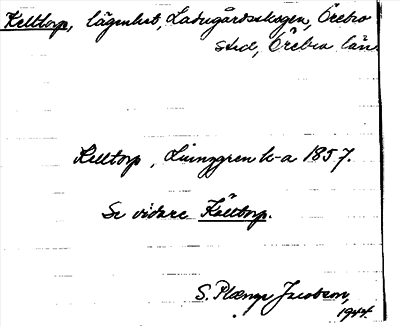 Kelltorp, lägenhet, Ladugårdsskogen, Örebro
stad, Örebro län.
Kelltorp, Ljunggren k-a 1857.
Se vidare Källtorp.
S. Plænge Jacobson,
1944.